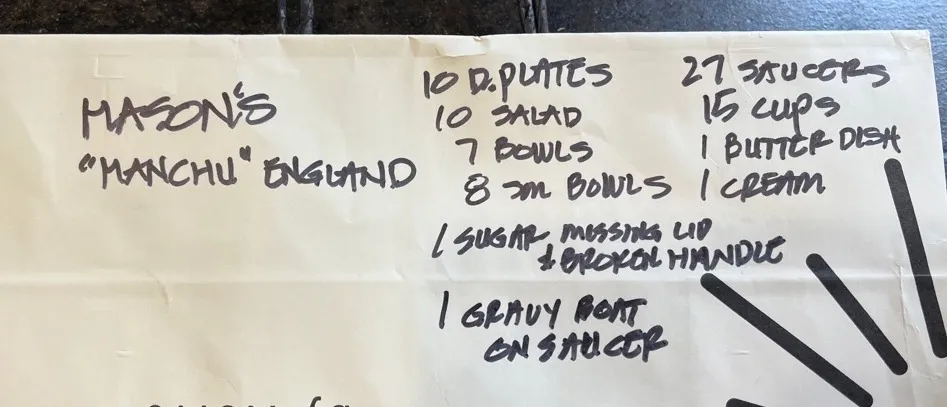 MASON'S
"MANCHU" ENGLAND
10 D. PLATES
10 SALAD
7 BOWLS
8 SM BOWLS
1 SUGAR MISSING LID
& BROKEN HANDLE
1 GRAVY BOAT
ON SAUCER
27 SAUCERS
15 CUPS
1 BUTTER DISH
1 CREAM